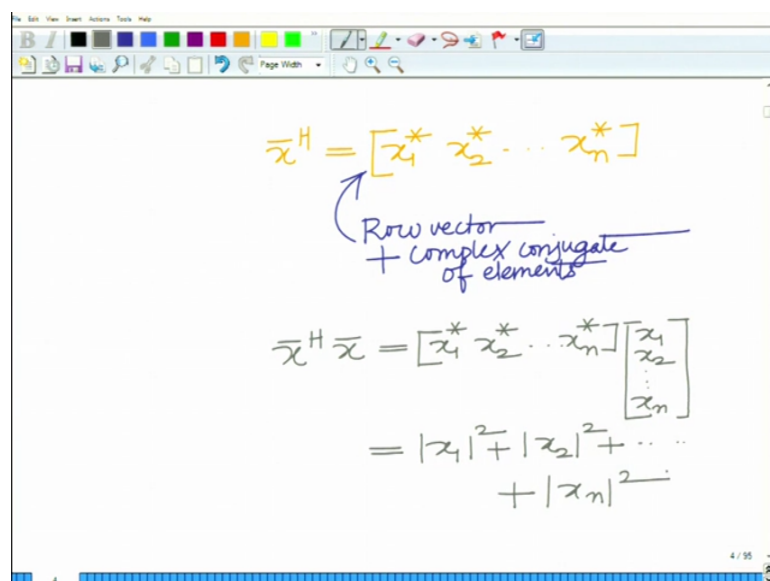 File Edit View Insert Actions Tools Help
B I Page Width
x̄^H = [x₁* x₂* ... xₙ*]
Row vector
+ complex conjugate
of elements
x̄^H x̄ = [x₁* x₂* ... xₙ*] [x₁ x₂ ⋮ xₙ]
= |x₁|² + |x₂|² + ....
+ |xₙ|²
4 / 95